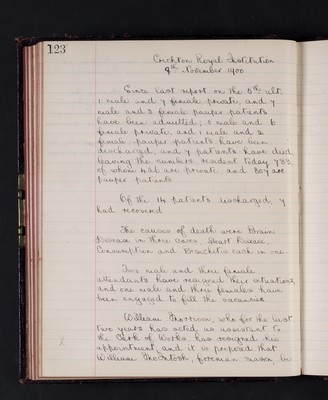 123
Crichton Royal Institution
8th November 1900
Since last report on the 5th ult.
1 male and 7 female private, and 7
male and 3 female pauper patients
have been admitted; 5 male and 6
female private, and 1 male and 2
female pauper patients have been
discharged, and 7 patients have died
leaving the numbers resident today 733
of whom 426 are private and 307 are
pauper patients
Of the 14 patients discharged 7
had recovered
The causes of death were Brain
Disease in three cases, Heart Disease,
Consumption and Bronchitis each in one
Two male and three female
attendants have resigned their situations,
and one male and three females have
been engaged to fill the vacancies
William Morrison, who for the last
two years has acted as assistant to
the Clerk of Works, has resigned his
appointment, and it is proposed that
William McIntosh, foreman mason, be
X